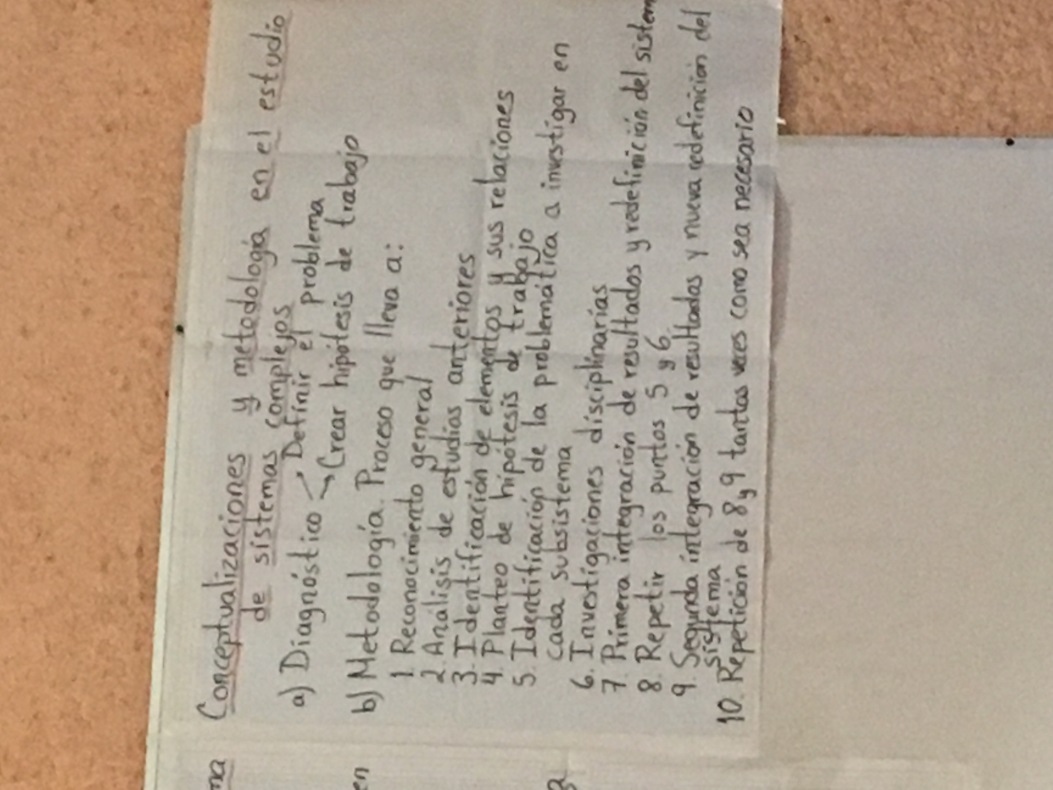 Conceptualizaciones y metodología en el estudio
de sistemas complejos
a) Diagnóstico → Definir el problema
→ Crear hipótesis de trabajo
b) Metodología. Proceso que lleva a:
1. Reconocimiento general
2. Análisis de estudios anteriores
3. Identificación de elementos y sus relaciones
4. Planteo de hipótesis de trabajo
5. Identificación de la problemática a investigar en
cada subsistema
6. Investigaciones disciplinarias
7. Primera integración de resultados y redefinición del sistem
8. Repetir los puntos 5 y 6
9. Segunda integración de resultados y nueva redefinición del
sistema
10. Repetición de 8 y 9 tantas veces como sea necesario
ma
en
a